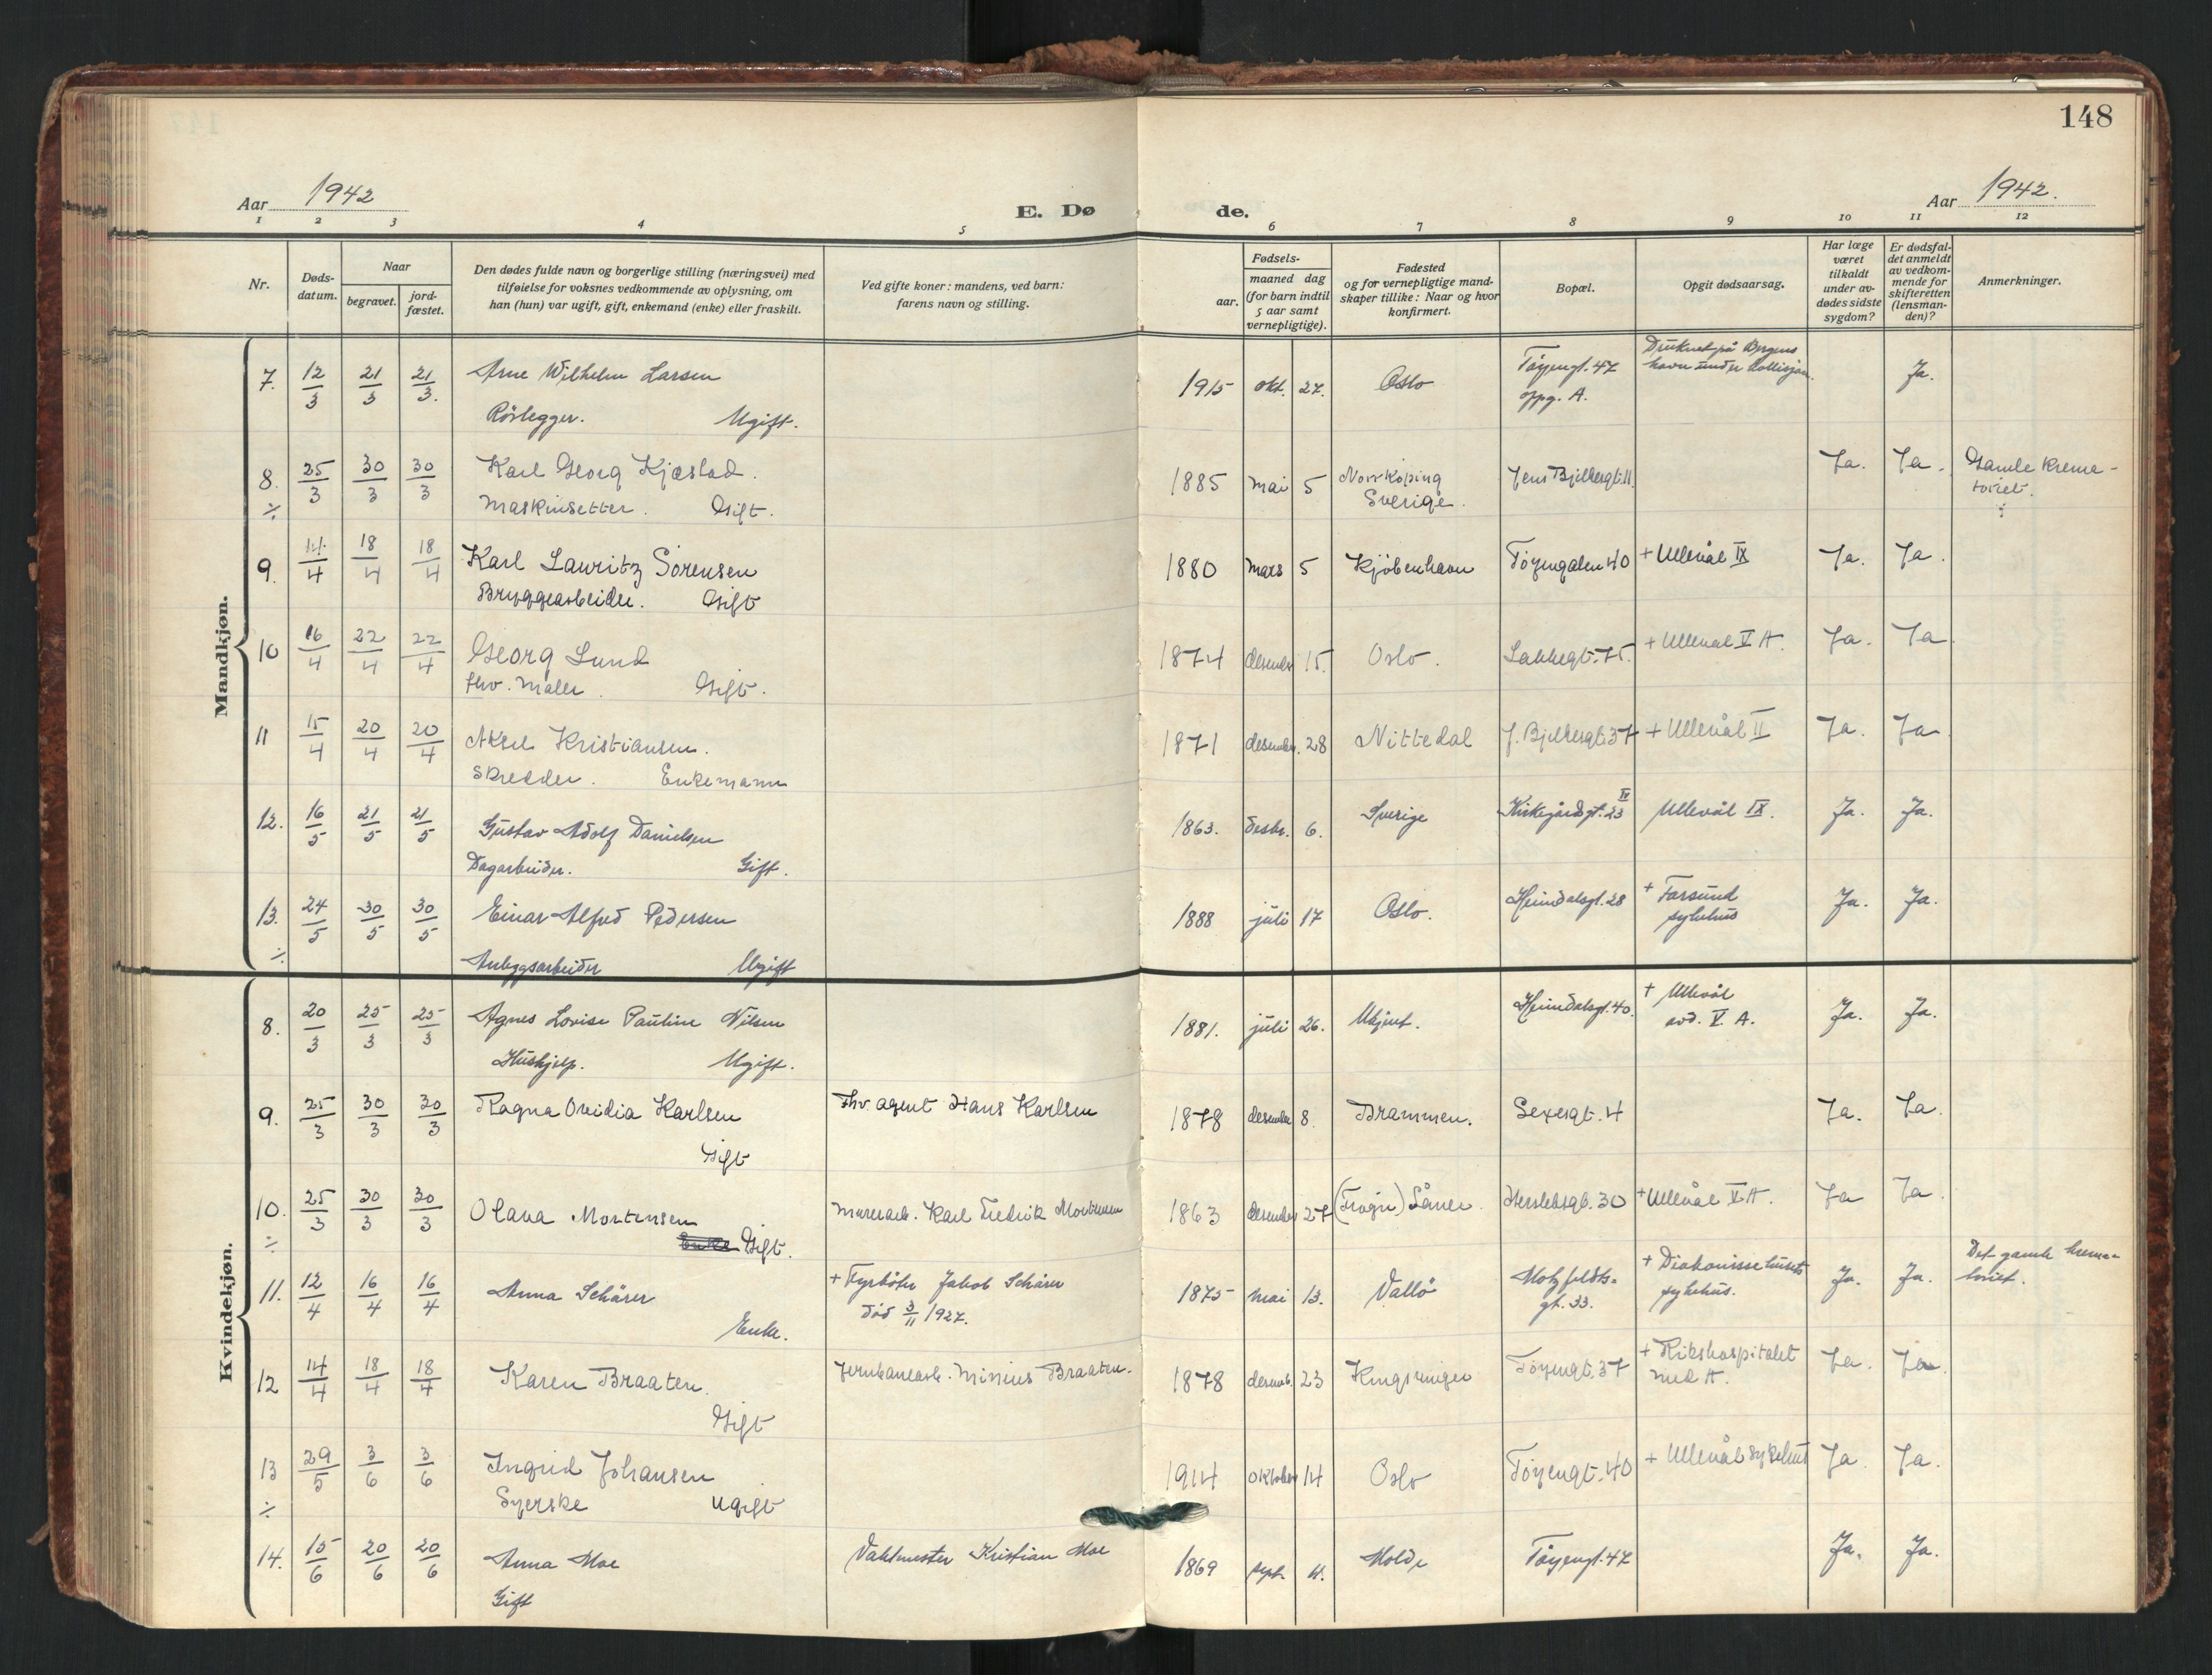 148
Aar 1942
E. Dø
de.
Aar 1942.
1 2 3 4 5 6 7 8 9 10 11 12
Nr.
Døds-
datum.
Naar
begravet.
jord-
fæstet.
Den dødes fulde navn og borgerlige stilling (næringsvei) med
tilføielse for voksnes vedkommende av oplysning, om
han (hun) var ugift, gift, enkemand (enke) eller fraskilt.
Ved gifte koner: mandens, ved barn:
farens navn og stilling.
Fødsels-
aar.
maaned dag
(for barn indtil
5 aar samt
vernepligtige).
Fødested
og for vernepligtige mand-
skaper tillike: Naar og hvor
konfirmert.
Bopæl.
Opgit dødsaarsag.
Har læge
været
tilkaldt
under av-
dødes sidste
sygdom?
Er dødsfal-
det anmeldt
av vedkom-
mende for
skifteretten
(lensman-
den)?
Anmerkninger.
Mandkjøn.
7. 12/3 21/3 21/3. Arne Wilhelm Larsen 1915 okt. 27. Oslo Tøyengt. 47 Druknet på Bergens Ja.
oppg. A. havn under kollisjon.
Rørlegger. Ugift.
8. 25/3 30/3 30/3 Karl Georg Kjæstad. 1885 mai 5 Norrköping Jens Bjelkesgt. 11. Ja. Ja. Gamle krema-
÷ Maskinsetter. Gift. Sverige. toriet.
9. 14/4 18/4 18/4 Karl Lauritz Sørensen 1880 Mars 5 Kjøbenhavn Tøyengaten 40 + Ullevål IX Ja. Ja.
Bryggearbeider. Gift
10 16/4 22/4 22/4 Georg Lund 1874 desember 15. Oslo. Lakkegt. 75. + Ullevål V A. Ja. Ja
fhv. maler. Gift.
11 15/4 20/4 20/4 Aksel Kristiansen. 1871 desember. 28 Nittedal J. Bjelkesgt. 37 + Ullevål II Ja. Ja
Skredder. Enkemann
12. 16/5 21/5 21/5 Gustav Adolf Danielsen 1863. desbr. 6. Sverige Kirkegårdsgt. 23 IV Ullevål IX. Ja. Ja.
Dagarbeider. Gift.
13. 24/5 30/5 30/5 Einar Alfred Pedersen 1888 juli 17 Oslo. Heimdalsgt. 28 + Farsund Ja. Ja.
sykehus
÷ Anleggsarbeider Ugift
Kvindekjøn.
8. 20/3 25/3 25/3 Agnes Lovise Pauline Nilsen 1881. juli 26. Ukjent. Heimdalsgt. 40. + Ullevål Ja. Ja.
avd. V. A.
Hushjelp. Ugift.
9. 25/3 30/3 30/3 Ragna Ovidia Karlsen Fhv. agent Hans Karlsen 1878 desember 8. Drammen. Sexesgt. 4 Ja. Ja.
Gift
10. 25/3 30/3 30/3 Olava Mortensen Murerarb. Karl Fredrik Mortensen 1863 desember 27 (Frogn) Såner. Herslebsgt. 30 + Ullevål V A. Ja Ja.
÷ Enke Gift.
11. 12/4 16/4 16/4 Anna Schärer + Fyrbøter Jakob Schärer 1875 mai 13. Vallø Motzfeldts- + Diakonissehusets Ja. Ja. Det gamle krema-
død 3/11 1927. gt. 33. sykehus. toriet.
Enke.
12 14/4 18/4 18/4 Karen Braaten. Jernbanearb. Minius Braaten. 1878 desemb. 23 Kongsvinger Tøyengt. 37 + Rikshospitalet Ja. Ja.
Gift med A.
13 29/5 3/6 3/6 Ingrid Johansen 1914 Oktober 14 Oslo Tøyengt. 40 + Ullevål sykehus Ja. Ja.
÷ Syerske ugift
14. 15/6 20/6 20/6 Anna Moe Vaktmester Kristian Moe 1869 sept. 4. Molde Tøyengt. 47 Ja. Ja.
Gift